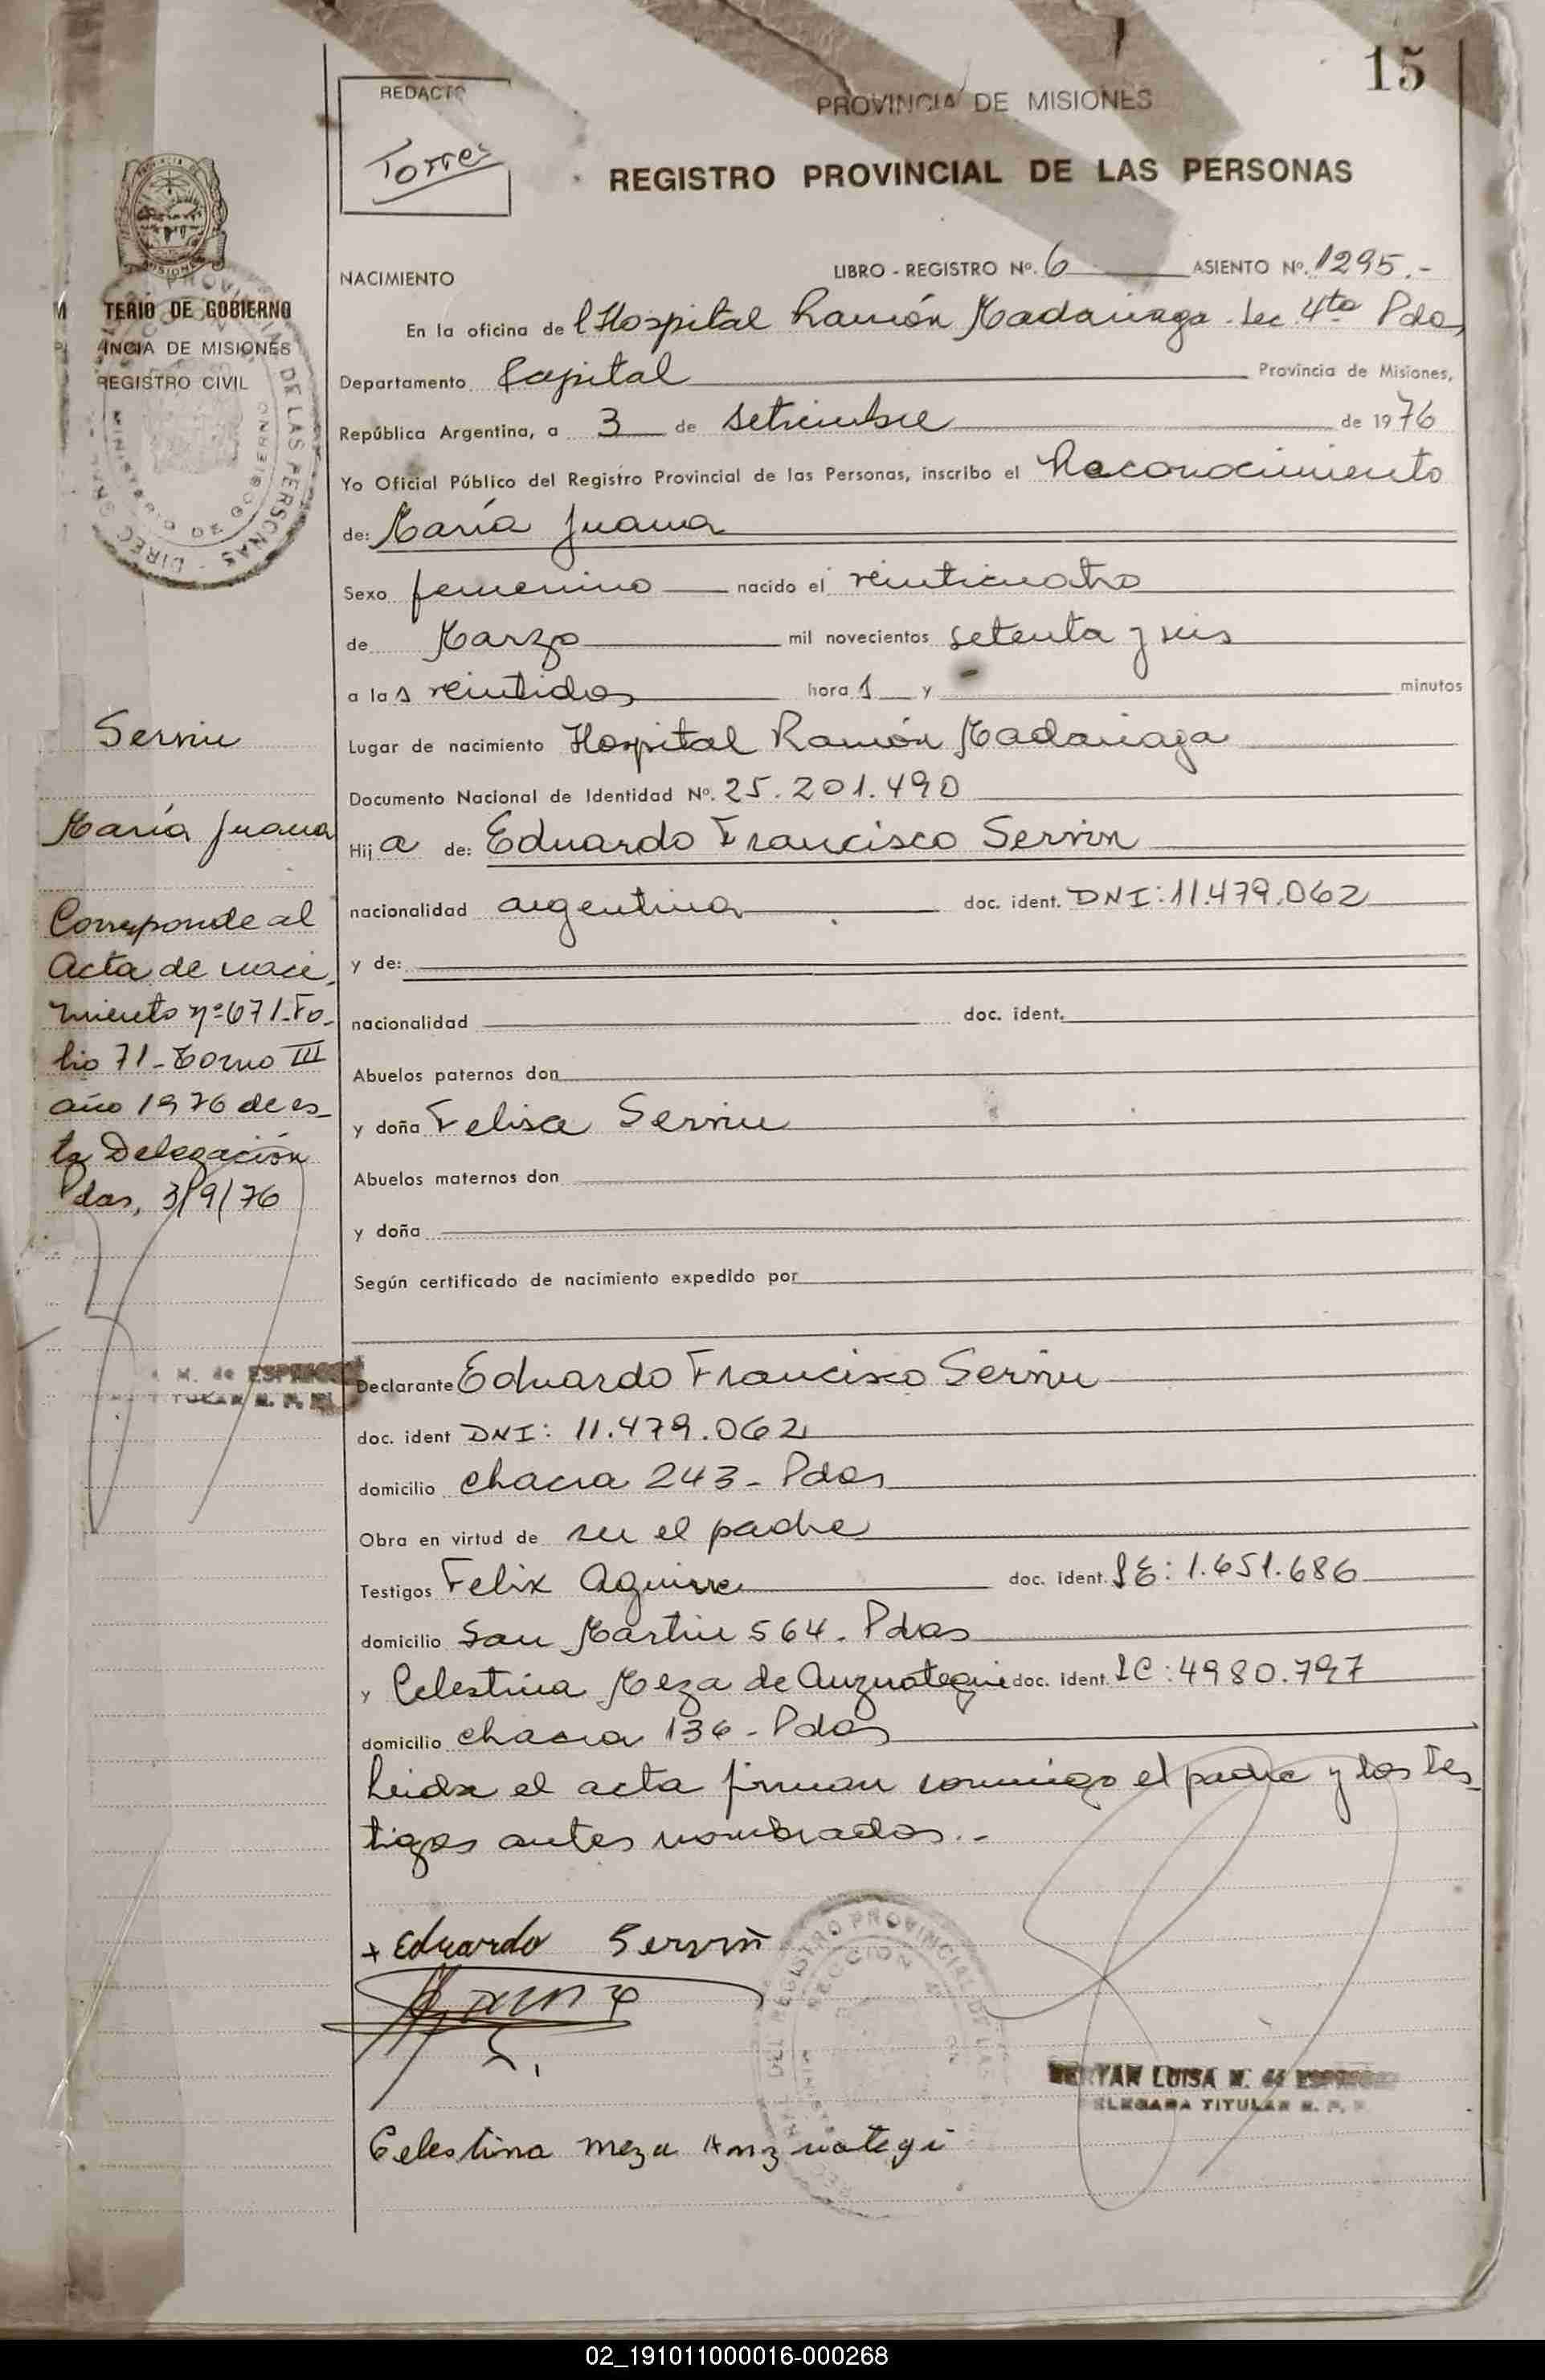 15
REDACTO
Torres
PROVINCIA DE MISIONES
REGISTRO PROVINCIAL DE LAS PERSONAS
NACIMIENTO
LIBRO - REGISTRO Nº. 6 ASIENTO Nº. 1295.-
En la oficina del Hospital Ramón Madariaga - Sec. 4ta Pdas
Departamento Capital Provincia de Misiones,
República Argentina, a 3 de setiembre de 1976
Yo Oficial Público del Registro Provincial de las Personas, inscribo el Reconocimiento
de: María Juana
Sexo femenino nacido el veinticuatro
de Marzo mil novecientos setenta y seis
a las veintidos hora 1 y - minutos
Lugar de nacimiento Hospital Ramón Madariaga
Documento Nacional de Identidad Nº. 25.201.490
Hija de: Eduardo Francisco Servin
nacionalidad argentina doc. ident. DNI: 11.479.062
y de:
nacionalidad doc. ident.
Abuelos paternos don
y doña Felisa Servin
Abuelos maternos don
y doña
Según certificado de nacimiento expedido por
Declarante Eduardo Francisco Servin
doc. ident DNI: 11.479.062
domicilio chacra 243 - Pdas
Obra en virtud de ser el padre
Testigos Felix Aguirre doc. ident. LE: 1.651.686
domicilio San Martin 564. Pdas
y Celestina Meza de Anzuategui doc. ident. LC: 4980.797
domicilio chacra 136 - Pdas
Leida el acta firman conmigo el padre y los tes-
tigos antes nombrados.-
+ Eduardo Servin
Celestina meza Anzuategi
LUISA M. de
TITULAR R. P. P.
TERIO DE GOBIERNO
INCIA DE MISIONES
REGISTRO CIVIL
DE LAS PERSONAS
Servin
María Juana
Corresponde al
Acta de naci-
miento nº 671-Fo-
lio 71 - Tomo III
año 1976 de es-
ta Delegación
Pdas, 3/9/76
M. de
TITULAR R. P. P.
REGISTRO PROVINCIAL DE LAS
SECCION
02_191011000016-000268